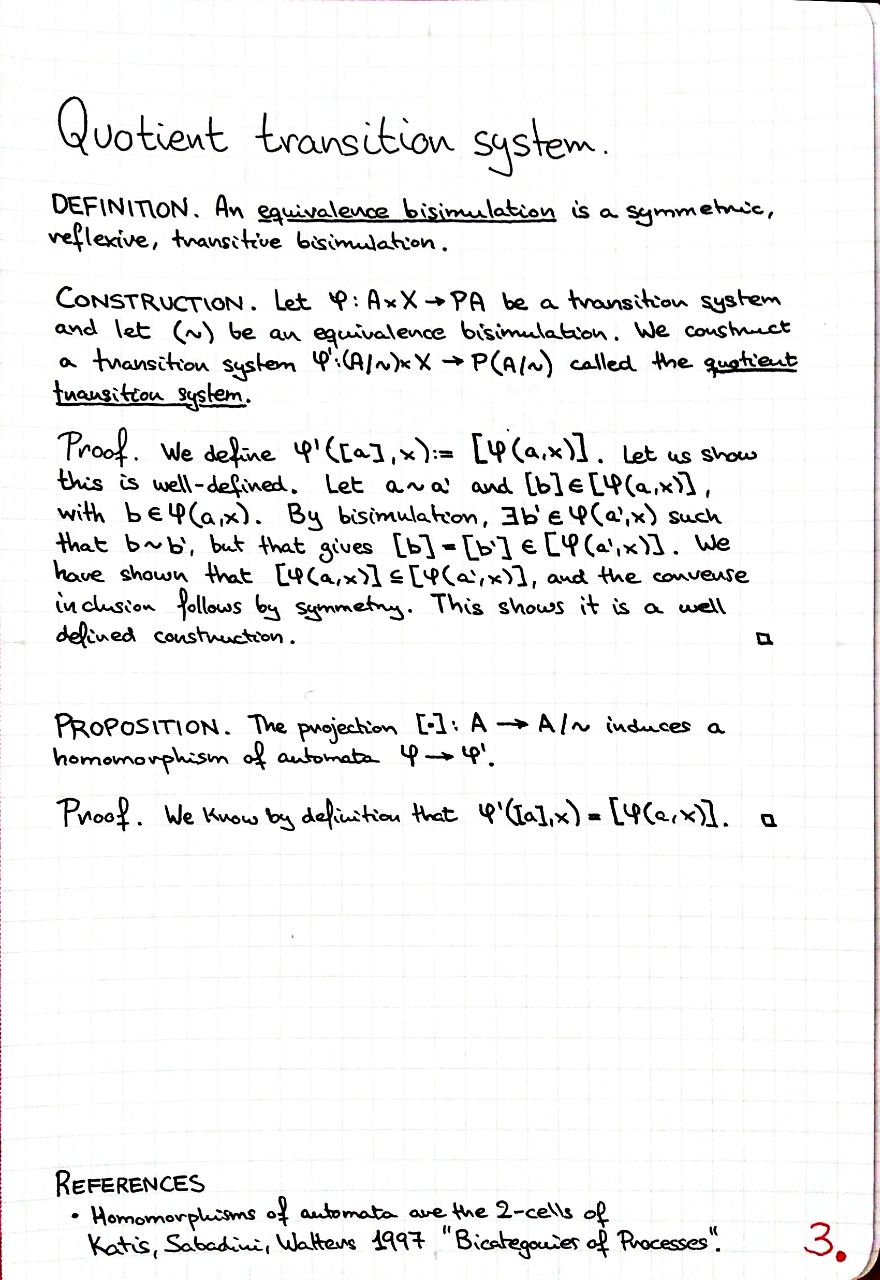 Quotient transition system.
DEFINITION. An equivalence bisimulation is a symmetric,
reflexive, transitive bisimulation.
CONSTRUCTION. Let φ: A×X → PA be a transition system
and let (∼) be an equivalence bisimulation. We construct
a transition system φ':(A/∼)×X → P(A/∼) called the quotient
transition system.
Proof. We define φ'([a],x):= [φ(a,x)]. Let us show
this is well-defined. Let a∼a' and [b]∈[φ(a,x)],
with b∈φ(a,x). By bisimulation, ∃b'∈φ(a',x) such
that b∼b', but that gives [b]=[b'] ∈ [φ(a',x)]. We
have shown that [φ(a,x)] ⊆ [φ(a',x)], and the converse
inclusion follows by symmetry. This shows it is a well
defined construction. □
PROPOSITION. The projection [·]: A → A/∼ induces a
homomorphism of automata φ → φ'.
Proof. We know by definition that φ'([a],x) = [φ(a,x)]. □
REFERENCES
• Homomorphisms of automata are the 2-cells of
Katis, Sabadini, Walters 1997 "Bicategories of Processes".
3.